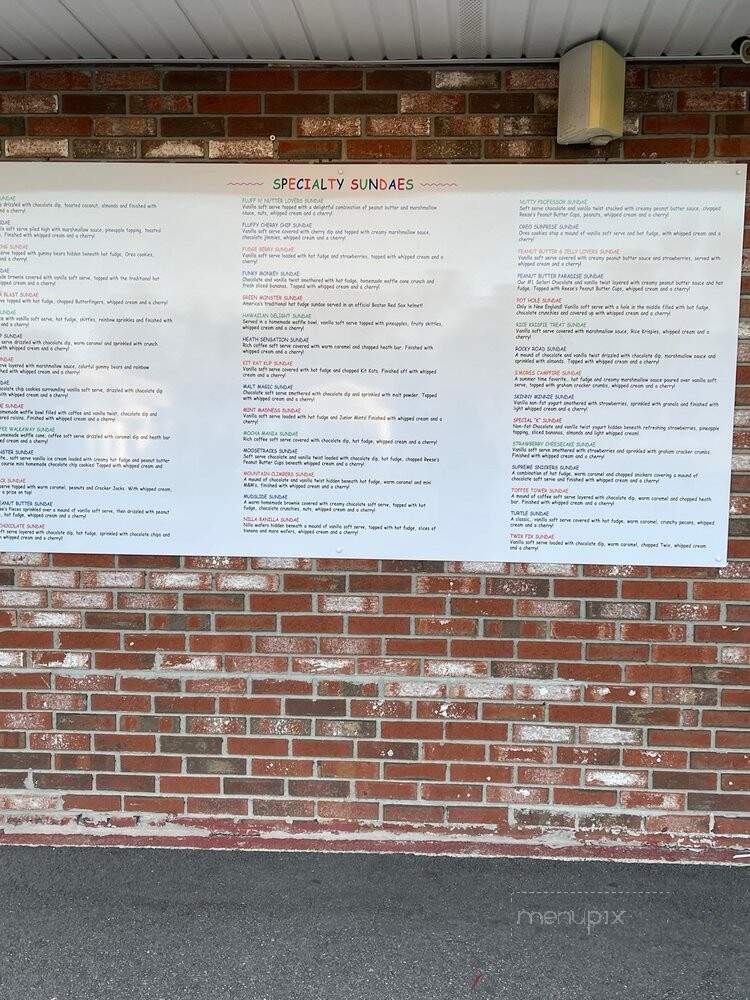 SPECIALTY SUNDAES
SUNDAE
drizzled with chocolate dip, toasted coconut, almonds and finished with
and a cherry!
SUNDAE
soft serve piled high with marshmallow sauce, pineapple topping, toasted
Finished with whipped cream and a cherry!
SUNDAE
serve topped with gummy bears hidden beneath hot fudge, Oreo cookies,
and a cherry!
brownie covered with vanilla soft serve, topped with the traditional hot
whipped cream and a cherry!
BLAST SUNDAE
hot fudge, chopped Butterfingers, whipped cream and a cherry!
SUNDAE
with vanilla soft serve, hot fudge, skittles, rainbow sprinkles and finished with
and a cherry!
SUNDAE
serve drizzled with chocolate dip, warm caramel and sprinkled with crunch
with whipped cream and a cherry!
layered with marshmallow sauce, colorful gummy bears and rainbow
with whipped cream and a cherry!
chocolate chip cookies surrounding vanilla soft serve, drizzled with chocolate dip
with whipped cream and a cherry!
SUNDAE
homemade waffle bowl filled with coffee and vanilla twist, chocolate dip and
covered raisins. Finished with whipped cream and a cherry!
WALKAWAY SUNDAE
homemade waffle cone, coffee soft serve drizzled with caramel dip and heath bar
cream and a cherry!
MONSTER SUNDAE
soft serve vanilla ice cream loaded with creamy hot fudge and peanut butter
course mini homemade chocolate chip cookies! Topped with whipped cream and
SUNDAE
serve topped with warm caramel, peanuts and Cracker Jacks. With whipped cream,
a prize on top!
PEANUT BUTTER SUNDAE
Reese's Pieces sprinkled over a mound of vanilla soft serve, then drizzled with peanut
hot fudge, whipped cream and a cherry!
CHOCOLATE SUNDAE
soft serve layered with chocolate dip, hot fudge, sprinkled with chocolate chips and
whipped cream and a cherry!
FLUFF N' NUTTER LOVERS SUNDAE
Vanilla soft serve topped with a delightful combination of peanut butter and marshmallow
sauce, nuts, whipped cream and a cherry!
FLUFFY CHERRY CHIP SUNDAE
Vanilla soft serve covered with cherry dip and topped with creamy marshmallow sauce,
chocolate jimmies, whipped cream and a cherry!
FUDGE BERRY SUNDAE
Vanilla soft serve loaded with hot fudge and strawberries, topped with whipped cream and a
cherry!
FUNKY MONKEY SUNDAE
Chocolate and vanilla twist smothered with hot fudge, homemade waffle cone crunch and
fresh sliced bananas. Topped with whipped cream and a cherry!
GREEN MONSTER SUNDAE
America's traditional hot fudge sundae served in an official Boston Red Sox helmet!
HAWAIIAN DELIGHT SUNDAE
Served in a homemade waffle bowl, vanilla soft serve topped with pineapples, fruity skittles,
whipped cream and a cherry!
HEATH SENSATION SUNDAE
Rich coffee soft serve covered with warm caramel and chopped heath bar. Finished with
whipped cream and a cherry!
KIT KAT KUP SUNDAE
Vanilla soft serve covered with hot fudge and chopped Kit Kats. Finished off with whipped
cream and a cherry!
MALT MAGIC SUNDAE
Chocolate soft serve smothered with chocolate dip and sprinkled with malt powder. Topped
with whipped cream and a cherry!
MINT MADNESS SUNDAE
Vanilla soft serve loaded with hot fudge and Junior Mints! Finished with whipped cream and a
cherry!
MOCHA MANIA SUNDAE
Rich coffee soft serve covered with chocolate dip, hot fudge, whipped cream and a cherry!
MOOSETRACKS SUNDAE
Soft serve chocolate and vanilla twist loaded with chocolate dip, hot fudge, chopped Reese's
Peanut Butter Cups beneath whipped cream and a cherry!
MOUNTAIN CLIMBERS SUNDAE
A mound of chocolate and vanilla twist hidden beneath hot fudge, warm caramel and mini
M&M's, finished with whipped cream and a cherry!
MUDSLIDE SUNDAE
A warm homemade brownie covered with creamy chocolate soft serve, topped with hot
fudge, chocolate crunchies, nuts, whipped cream and a cherry!
NILLA RANILLA SUNDAE
Nilla wafers hidden beneath a mound of vanilla soft serve, topped with hot fudge, slices of
banana and more wafers, whipped cream and a cherry!
NUTTY PROFESSOR SUNDAE
Soft serve chocolate and vanilla twist stacked with creamy peanut butter sauce, chopped
Reese's Peanut Butter Cups, peanuts, whipped cream and a cherry!
OREO SURPRISE SUNDAE
Oreo cookies atop a mound of vanilla soft serve and hot fudge, with whipped cream and a
cherry!
PEANUT BUTTER & JELLY LOVERS SUNDAE
Vanilla soft serve covered in creamy peanut butter sauce and strawberries, served with
whipped cream and a cherry!
PEANUT BUTTER PARADISE SUNDAE
Our #1 Seller! Chocolate and vanilla twist layered with creamy peanut butter sauce and hot
fudge. Topped with Reese's Peanut Butter Cups, whipped cream and a cherry!
POT HOLE SUNDAE
Only in New England! Vanilla soft serve with a hole in the middle filled with hot fudge,
chocolate crunchies and covered up with whipped cream and a cherry!
RICE KRISPIE TREAT SUNDAE
Vanilla soft serve covered with marshmallow sauce, Rice Krispies, whipped cream and a
cherry!
ROCKY ROAD SUNDAE
A mound of chocolate and vanilla twist drizzled with chocolate dip, marshmallow sauce and
sprinkled with almonds. Topped with whipped cream and a cherry!
S'MORES CAMPFIRE SUNDAE
A summer time favorite... hot fudge and creamy marshmallow sauce poured over vanilla soft
serve, topped with graham cracker crumbs, whipped cream and a cherry!
SKINNY MINNIE SUNDAE
Vanilla non-fat yogurt smothered with strawberries, sprinkled with granola and finished with
light whipped cream and a cherry!
SPECIAL "K" SUNDAE
Non-fat Chocolate and vanilla twist yogurt hidden beneath refreshing strawberries, pineapple
topping, sliced bananas, almonds and light whipped cream!
STRAWBERRY CHEESECAKE SUNDAE
Vanilla soft serve smothered with strawberries and sprinkled with graham cracker crumbs.
Finished with whipped cream and a cherry!
SUPREME SNICKERS SUNDAE
A combination of hot fudge, warm caramel and chopped snickers covering a mound of
chocolate soft serve and finished with whipped cream and a cherry!
TOFFEE TOWER SUNDAE
A mound of coffee soft serve layered with chocolate dip, warm caramel and chopped heath
bar. Finished with whipped cream and a cherry!
TURTLE SUNDAE
A classic...vanilla soft serve covered with hot fudge, warm caramel, crunchy pecans, whipped
cream and a cherry!
TWIX FIX SUNDAE
Vanilla soft serve loaded with chocolate dip, warm caramel, chopped Twix, whipped cream
and a cherry!
menupix